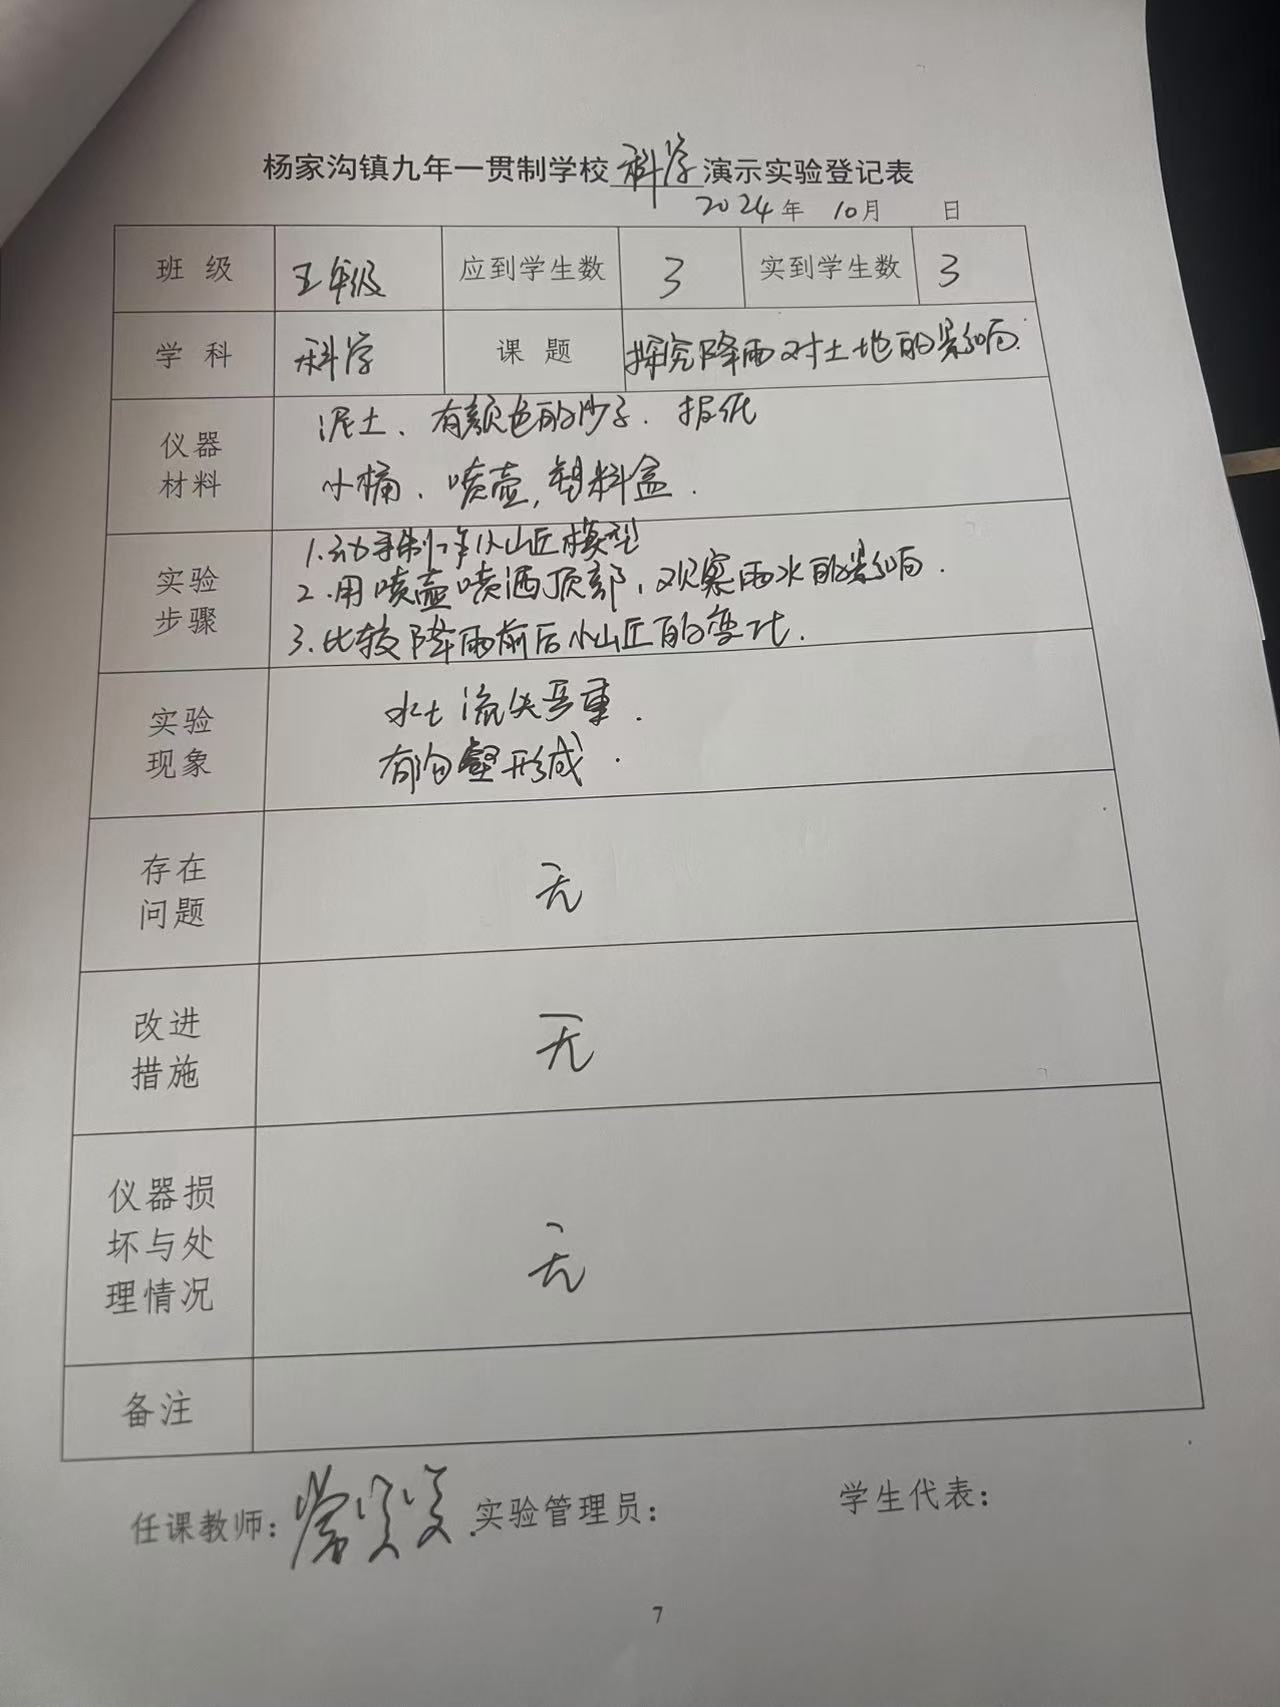 杨家沟镇九年一贯制学校 科学 演示实验登记表
2024年 10月 日
班 级 五年级 应到学生数 3 实到学生数 3
学 科 科学 课 题 探究降雨对土地的影响.
仪器
材料
泥土、有颜色的沙子. 报纸
小桶、喷壶,塑料盒.
实验
步骤
1.动手制作小山丘模型
2.用喷壶喷洒顶部,观察雨水的影响.
3.比较降雨前后小山丘的变化.
实验
现象
水土流失严重.
有沟壑形成.
存在
问题
无
改进
措施
无
仪器损
坏与处
理情况
无
备注
任课教师: 实验管理员: 学生代表:
7